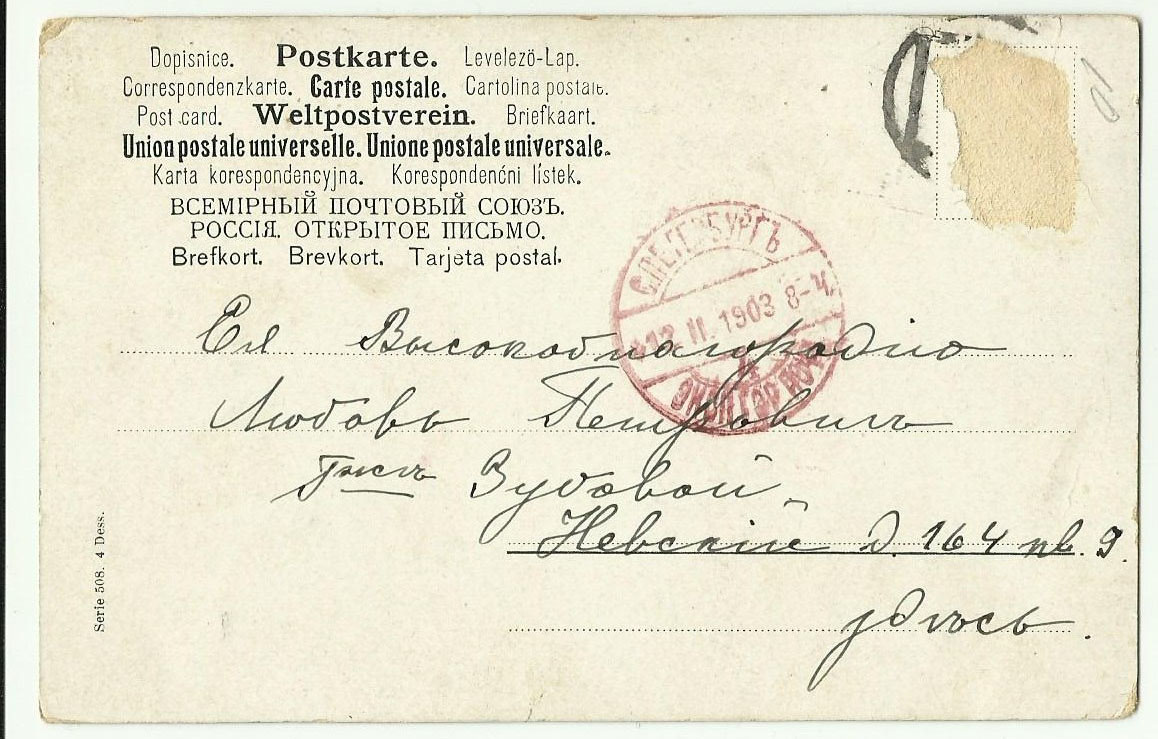 Dopisnice. Postkarte. Levelező-Lap.
Correspondenzkarte. Carte postale. Cartolina postale.
Post card. Weltpostverein. Briefkaart.
Union postale universelle. Unione postale universale.
Karta korespondencyjna. Korespondenčni lístek.
ВСЕМІРНЫЙ ПОЧТОВЫЙ СОЮЗЪ.
РОССІЯ. ОТКРЫТОЕ ПИСЬМО.
Brefkort. Brevkort. Tarjeta postal.
С.ПЕТЕРБУРГЪ
12 II 1903 8-Ч.
4
Ея Высокоблагородію
Любовь Петровнѣ
Зубовой
Невскій д. 164 кв. 9.
здѣсь.
Serie 508. 4 Dess.